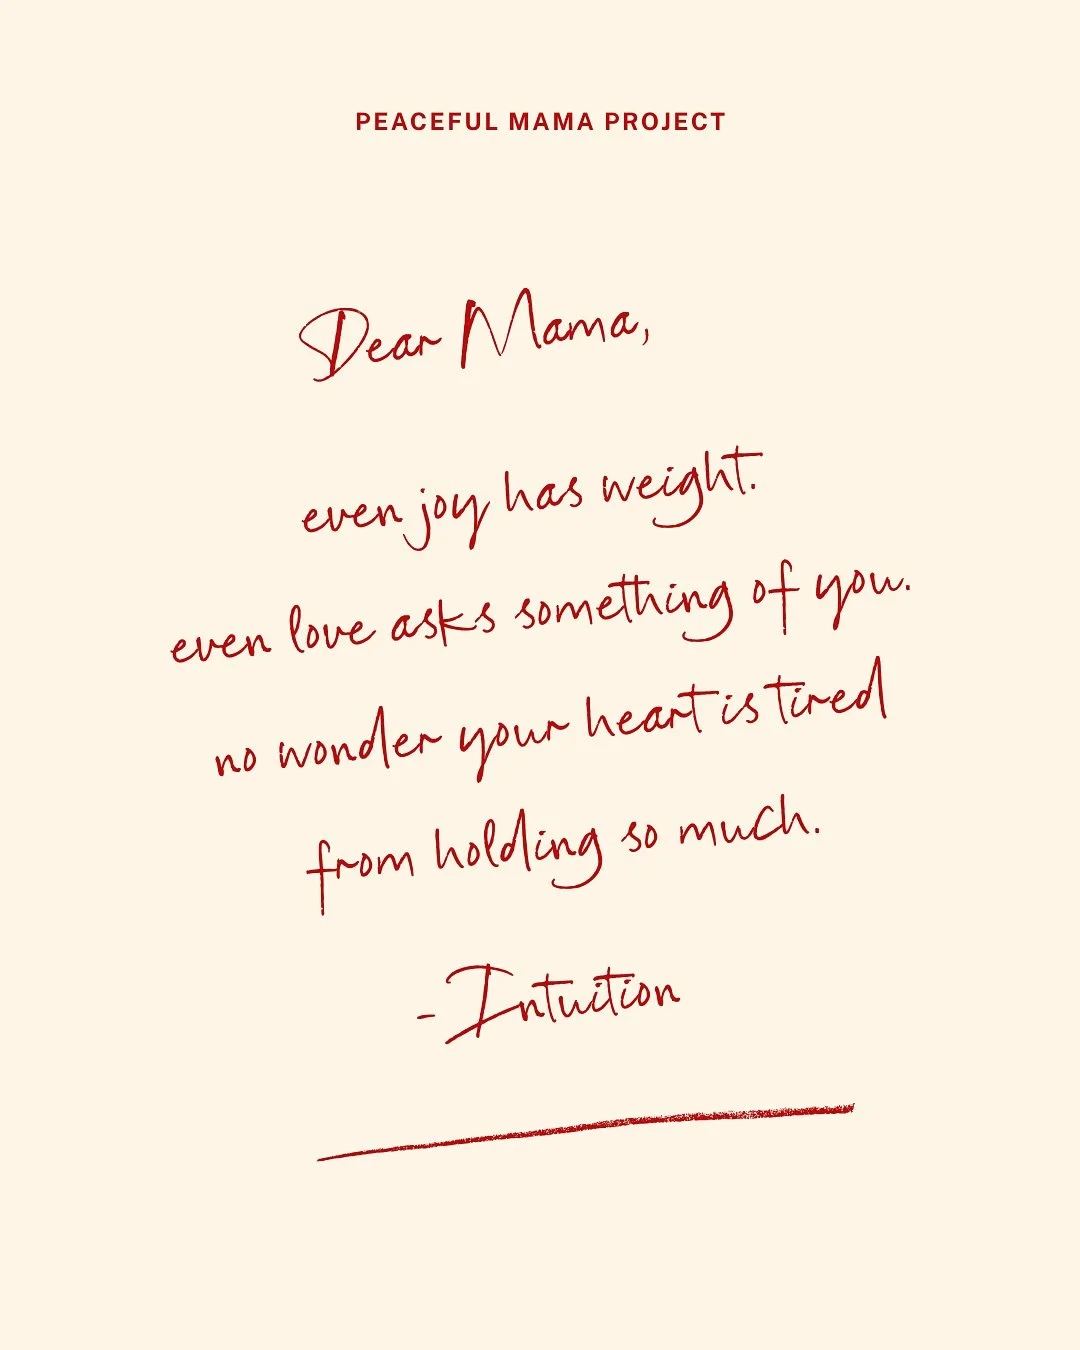 PEACEFUL MAMA PROJECT
Dear Mama,
even joy has weight.
even love asks something of you.
no wonder your heart is tired
from holding so much.
- Intuition